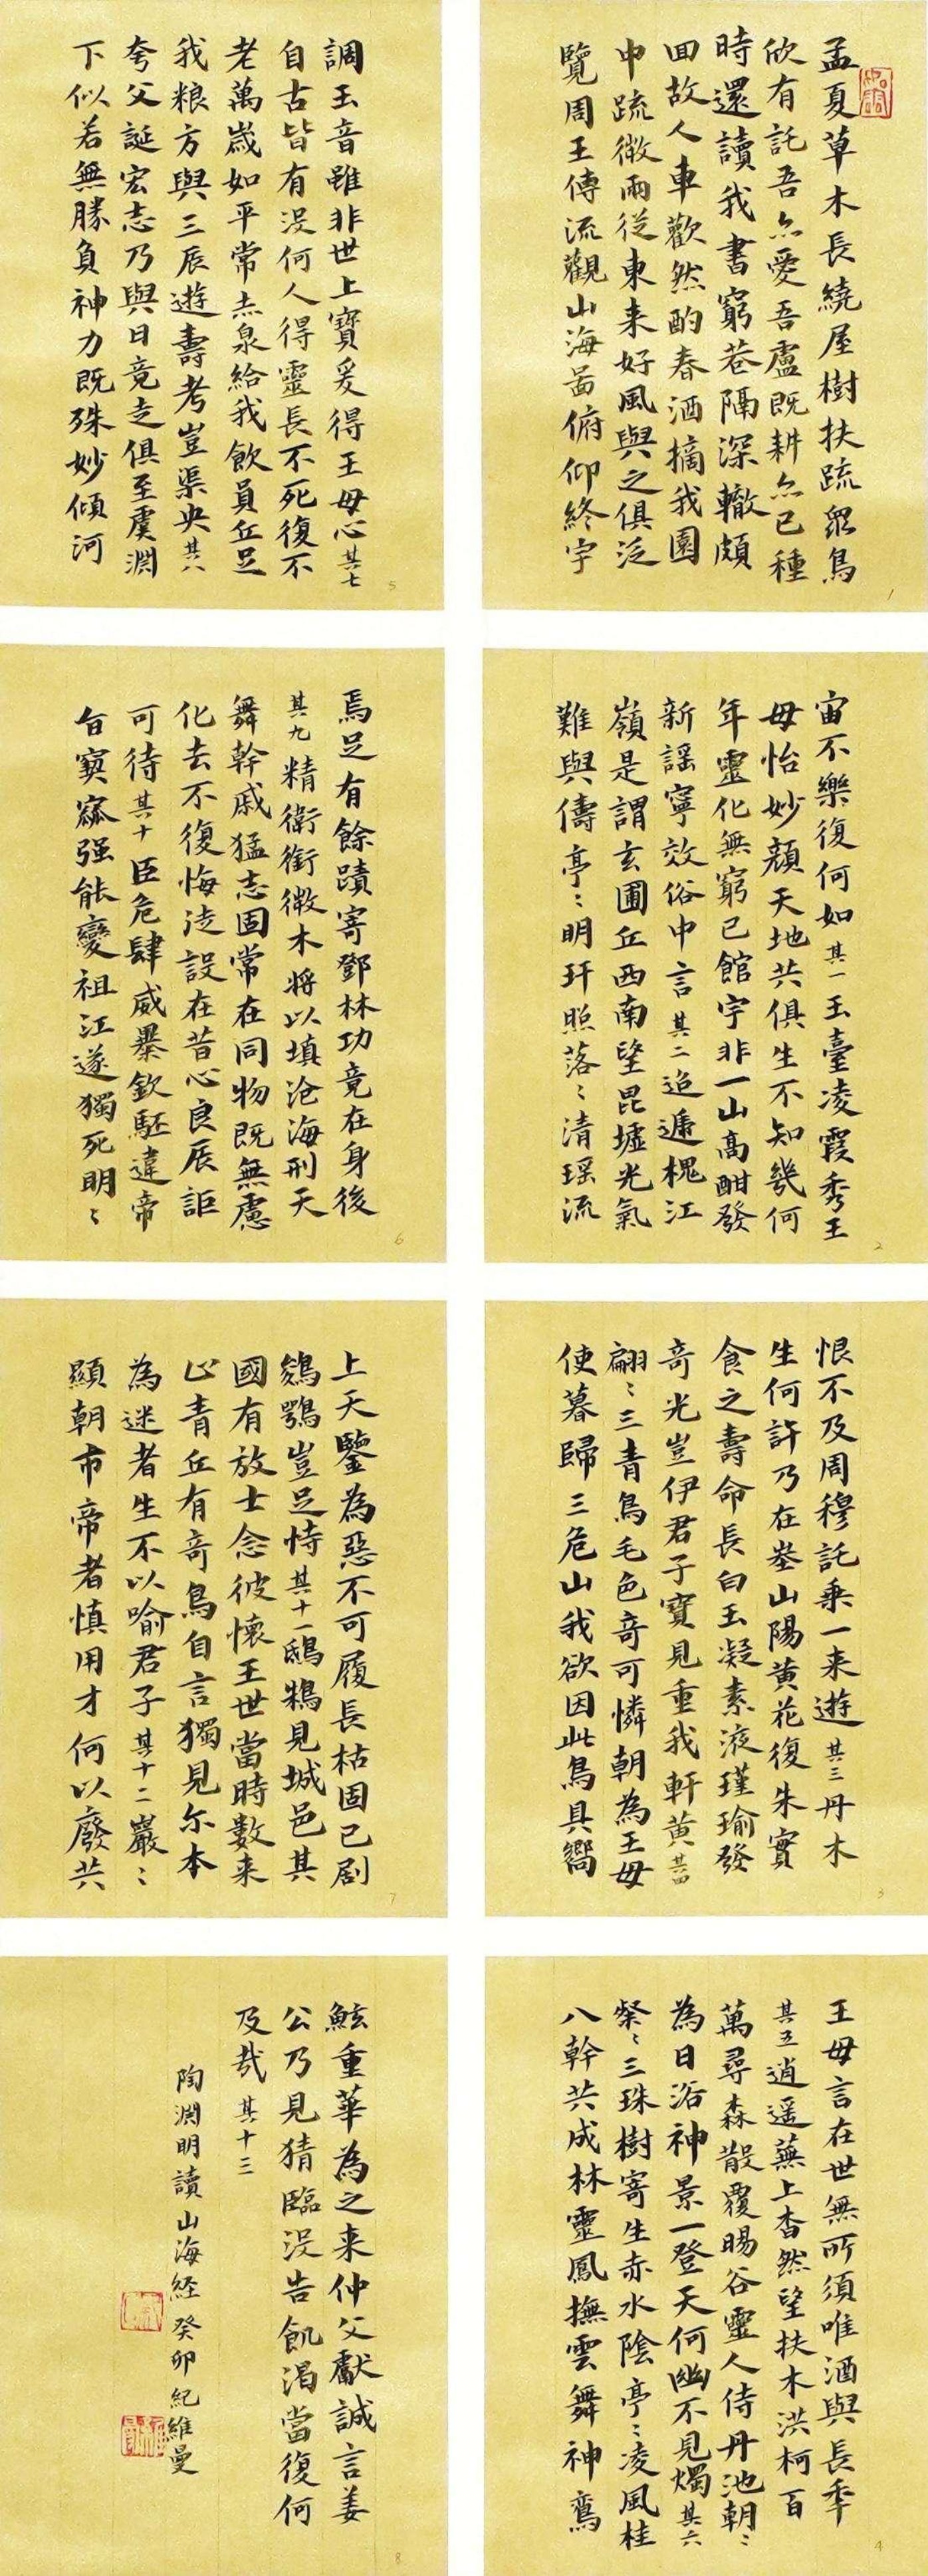 孟夏草木長繞屋樹扶疏眾鳥
欣有託吾亦愛吾廬既耕亦已種
時還讀我書窮巷隔深轍頗
回故人車歡然酌春酒摘我園
中蔬微雨從東来好風與之俱泛
覽周王傳流觀山海圖俯仰終宇
1
宙不樂復何如其一玉臺凌霞秀王
母怡妙顏天地共俱生不知幾何
年靈化無窮已館宇非一山高酣發
新謡寧效俗中言其二迢遞槐江
嶺是謂玄圃丘西南望昆墟光氣
難與儔亭〻明玕照落〻清瑶流
2
恨不及周穆託乘一来遊其三丹木
生何許乃在峚山陽黄花復朱實
食之壽命長白玉凝素液瑾瑜發
奇光豈伊君子寶見重我軒黄其四
翩〻三青鳥毛色奇可憐朝為王母
使暮歸三危山我欲因此鳥具嚮
3
王母言在世無所須唯酒與長年
其五逍遥蕪上杳然望扶木洪柯百
萬尋森散覆暘谷靈人侍丹池朝〻
為日浴神景一登天何幽不見燭其六
粲〻三珠樹寄生赤水陰亭〻凌風桂
八幹共成林靈鳳撫雲舞神鸞
4
調玉音雖非世上寶爰得王母心其七
自古皆有沒何人得靈長不死復不
老萬歲如平常赤泉給我飲員丘足
我粮方與三辰遊壽考豈渠央其八
夸父誕宏志乃與日竟走俱至虞淵
下似若無勝負神力既殊妙傾河
5
焉足有餘蹟寄鄧林功竟在身後
其九精衛銜微木將以填滄海刑天
舞幹戚猛志固常在同物既無慮
化去不復悔徒設在昔心良辰詎
可待其十臣危肆威暴欽駓違帝
旨窫窳强能變祖江遂獨死明〻
6
上天鑒為惡不可履長枯固已劇
鵕鶚豈足恃其十一鴟鴸見城邑其
國有放士念彼懷王世當時數来
止青丘有奇鳥自言獨見尔本
為迷者生不以喻君子其十二巖〻
顯朝市帝者慎用才何以廢共
7
鮌重華為之来仲父獻誠言姜
公乃見猜臨沒告飢渴當復何
及哉其十三
陶淵明讀山海経癸卯紀維曼
8